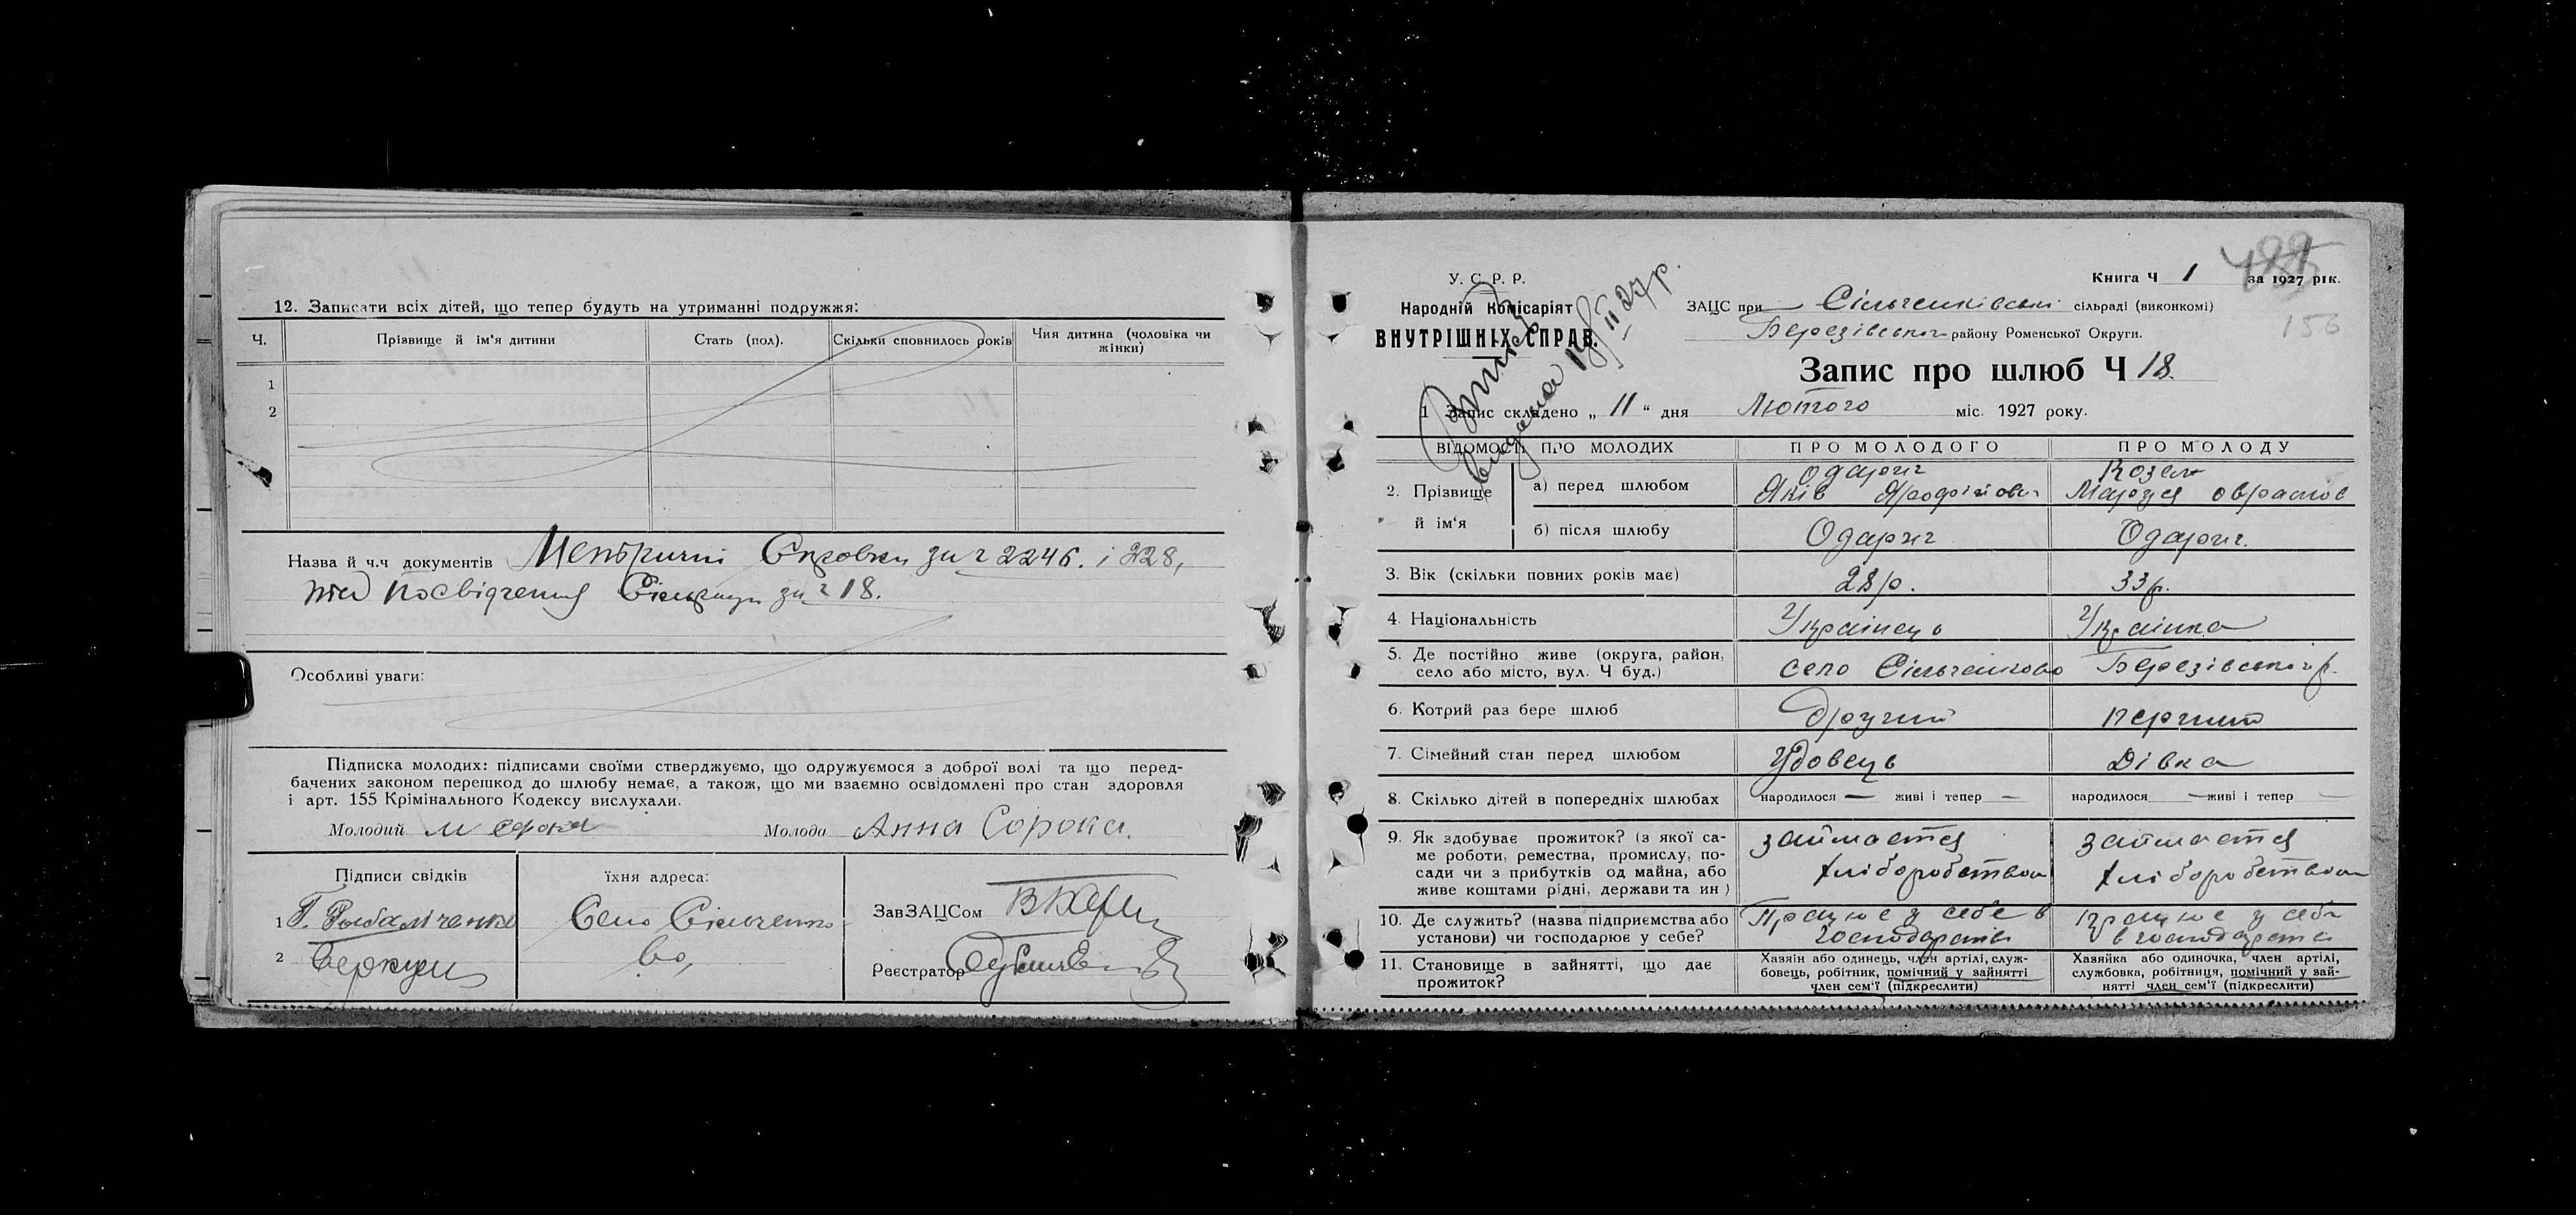 12. Записати всіх дітей, що тепер будуть на утриманні подружжя:
Ч. Прізвище й ім'я дитини Стать (пол). Скільки сповнилось років Чия дитина (чоловіка чи жінки)
1
2
Назва й ч.ч документів Метричні Справки за ч 2246. і 228,
посвідчення за ч 18.
Особливі уваги:
Підписка молодих: підписами своїми стверджуємо, що одружуємося з доброї волі та що перед-
бачених законом перешкод до шлюбу немає, а також, що ми взаємно освідомлені про стан здоровля
і арт. 155 Крімінального Кодексу вислухали.
Молодий М Сорока Молода Анна Сорока.
Підписи свідків їхня адреса:
1 Г. Рыбальченко Село Сільченко-
2 во,
ЗавЗАЦСом
Реєстратор
У. С. Р. Р.
Народній Комісаріят
ВНУТРІШНІХ СПРАВ.
видана 12/II 27 р.
Книга Ч 1 за 1927 рік.
156
ЗАЦС при Сільченківській сільраді (виконкомі)
Березівського району Роменської Округи.
Запис про шлюб Ч 18.
1 Запис складено „ 11 “ дня Лютого міс. 1927 року.
ВІДОМОСТІ ПРО МОЛОДИХ ПРО МОЛОДОГО ПРО МОЛОДУ
2. Прізвище й ім'я
а) перед шлюбом Яків Козел
б) після шлюбу
3. Вік (скільки повних років має) 28 р. 33 р.
4. Національність Українець Українка
5. Де постійно живе (округа, район, село Сільченково Березівського р.
село або місто, вул. Ч буд.)
6. Котрий раз бере шлюб другий перший
7. Сімейний стан перед шлюбом Удовець Дівка
8. Скілько дітей в попередніх шлюбах народилося — живі і тепер — народилося — живі і тепер —
9. Як здобуває прожиток? (з якої са- займается займается
ме роботи, ремества, промислу, по- хліборобством хліборобством
сади чи з прибутків од майна, або
живе коштами рідні, держави та ин)
10. Де служить? (назва підприємства або Працює у себе в працює у себе
установи) чи господарює у себе? господарстві в господарстві
11. Становище в зайнятті, що дає прожиток?
Хазяїн або одинець, член артілі, служ-
бовець, робітник, помічний у зайнятті
член сем'ї (підкреслити)
Хазяйка або одиночка, член артілі,
службовка, робітниця, помічний у зай-
нятті член сем'ї (підкреслити)